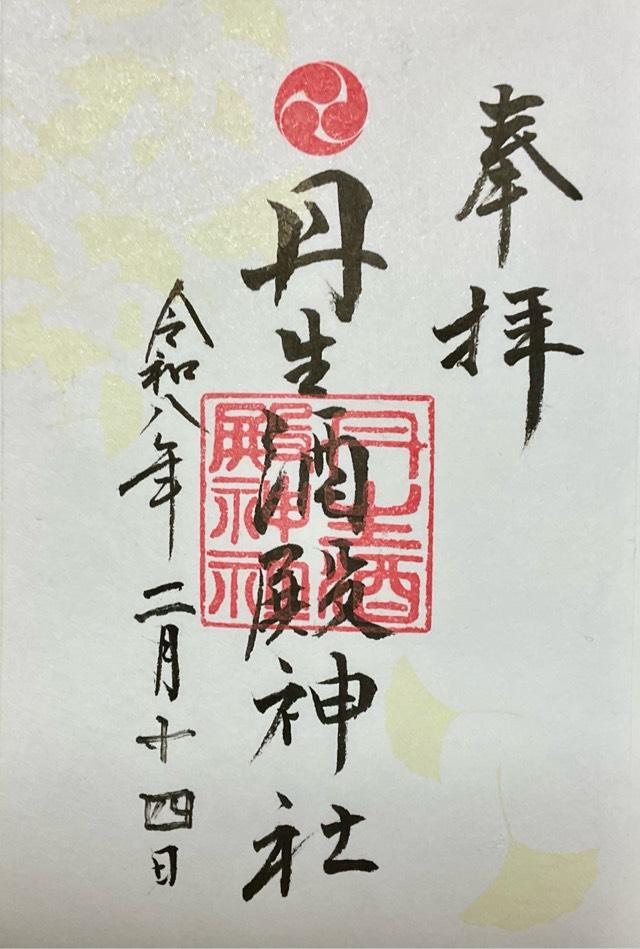 奉拝
丹生酒殿神社
丹生酒殿神社
令和八年二月十四日